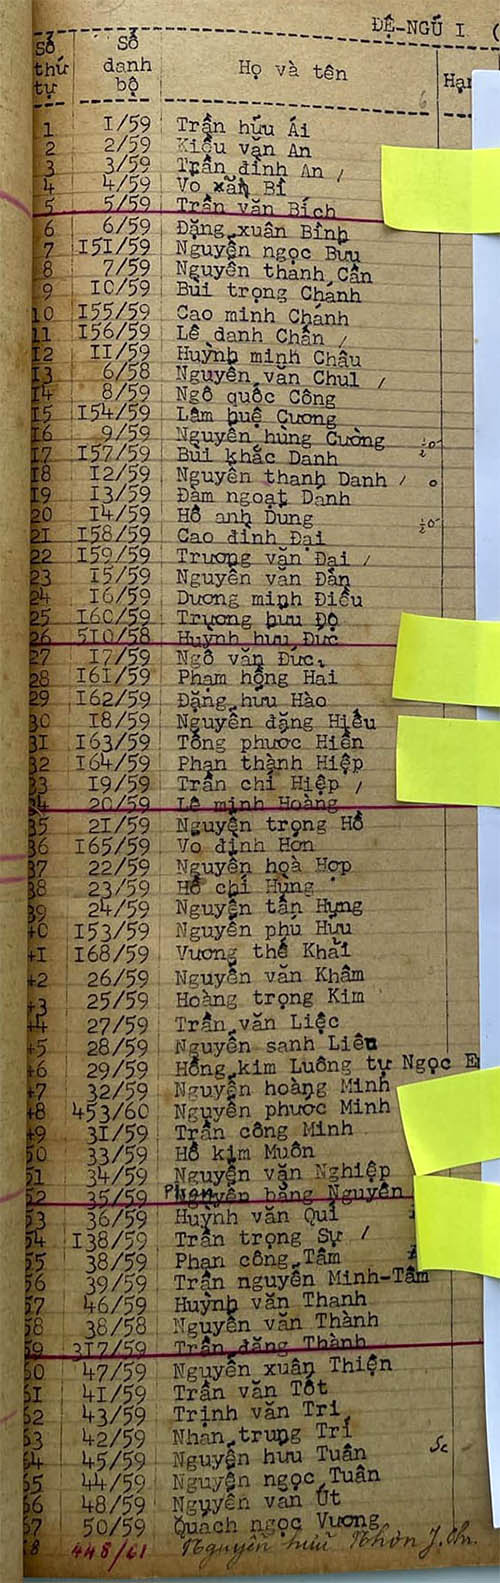 ĐỆ-NGŨ I (
Số thứ tự Số danh bộ Họ và tên Hạn
1 I/59 Trần hữu Ái
2 2/59 Kiều văn An
3 3/59 Trần đình An /
4 4/59 Võ văn Bỉ
5 5/59 Trần văn Bích
6 6/59 Đặng xuân Bình
7 I5I/59 Nguyễn ngọc Bưu
8 7/59 Nguyễn thanh Cần
9 I0/59 Bùi trọng Chánh
10 I55/59 Cao minh Chánh
11 I56/59 Lê danh Chấn /
12 II/59 Huỳnh minh Châu
13 6/58 Nguyễn văn Chul /
14 8/59 Ngô quốc Công
15 I54/59 Lâm huệ Cương
16 9/59 Nguyễn hùng Cường
17 I57/59 Bùi khắc Danh
18 I2/59 Nguyễn thanh Danh /
19 I3/59 Đàm ngoạt Danh
20 I4/59 Hồ anh Dung
21 I58/59 Cao đình Đại
22 I59/59 Trương văn Đại /
23 I5/59 Nguyễn văn Đản
24 I6/59 Dương minh Điều
25 I60/59 Trương hưu Độ
26 5I0/58 Huỳnh hưu Đức
27 I7/59 Ngô văn Đức
28 I6I/59 Phạm hồng Hai
29 I62/59 Đặng hưu Hào
30 I8/59 Nguyễn đặng Hiếu
31 I63/59 Tống phước Hiền
32 I64/59 Phan thành Hiệp
33 I9/59 Trần chí Hiệp /
34 20/59 Lê minh Hoàng
35 2I/59 Nguyễn trọng Hồ
36 I65/59 Vo định Hơn
37 22/59 Nguyễn hoà Hợp
38 23/59 Hồ chí Hùng
39 24/59 Nguyễn tấn Hưng
40 I53/59 Nguyễn phu Hưu
41 I68/59 Vương thế Khải
42 26/59 Nguyễn văn Khâm
43 25/59 Hoàng trọng Kim
44 27/59 Trần văn Liệc
45 28/59 Nguyễn sanh Liêu
46 29/59 Hồng kim Luông tự Ngọc E
47 32/59 Nguyễn hoàng Minh
48 453/60 Nguyễn phước Minh
49 3I/59 Trần công Minh
50 33/59 Hồ kim Muôn
51 34/59 Nguyễn văn Nghiệp
52 35/59 Phan bảng Nguyên
53 36/59 Huỳnh văn Quí
54 I38/59 Trần trọng Sự /
55 38/59 Phan công Tâm
56 39/59 Trần nguyên Minh-Tâm
57 46/59 Huỳnh văn Thanh
58 38/58 Nguyễn văn Thành
59 3I7/59 Trần đăng Thành
60 47/59 Nguyễn xuân Thiện
61 4I/59 Trần văn Tốt
62 43/59 Trịnh văn Tri
63 42/59 Nhan trung Trí
64 45/59 Nguyễn hưu Tuân Sc
65 44/59 Nguyễn ngọc Tuân
66 48/59 Nguyễn văn Út
67 50/59 Quách ngọc Vương
68 448/61 Nguyễn hữu Nhơn J. Chr.